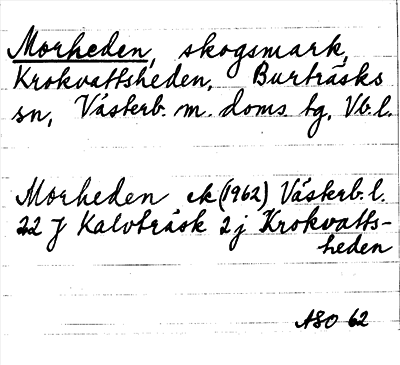 Morheden, skogsmark,
Krokvattsheden, Burträsks
sn, Västerb. m. doms tg, Vb. l.
Morheden ek (1962) Västerb. l.
22 J Kalvträsk 2 j Krokvatts-
heden
ASO 62